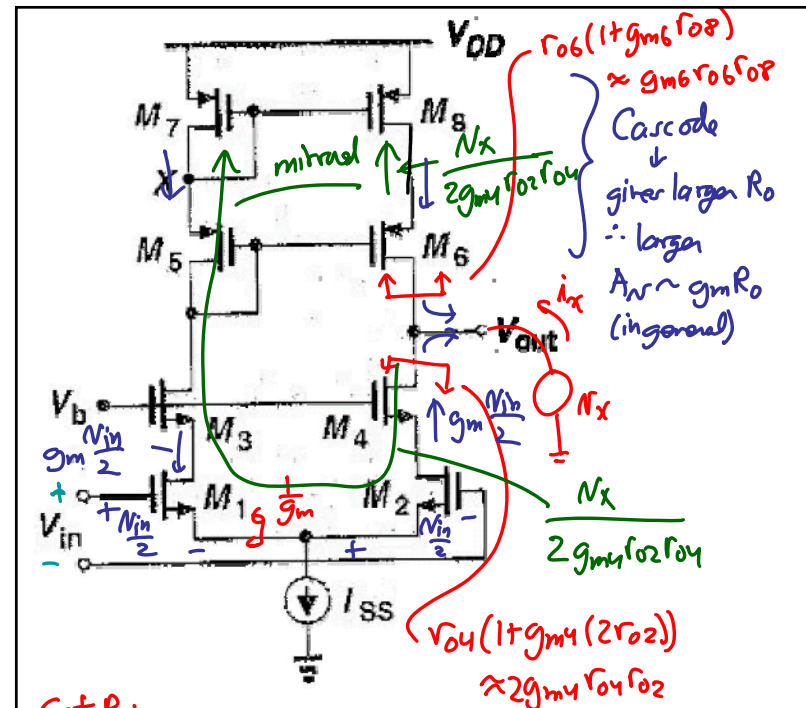 V_DD
r_o6(1+g_m6 r_o8)
≈ g_m6 r_o6 r_o8
M_7
M_8
Cascode
↓
gives larger R_o
∴ larger
A_v ~ g_m R_o
(in general)
X
v_x
2g_m4 r_o2 r_o4
M_5
M_6
i_x
V_out
v_x
V_b
M_3
M_4
g_m v_in/2
g_m v_in/2
M_1
1/g_m
M_2
+
V_in
-
+ v_in/2 -
+ v_in/2 -
v_x
2g_m4 r_o2 r_o4
I_SS
r_o4(1+g_m4(2r_o2))
≈2g_m4 r_o4 r_o2